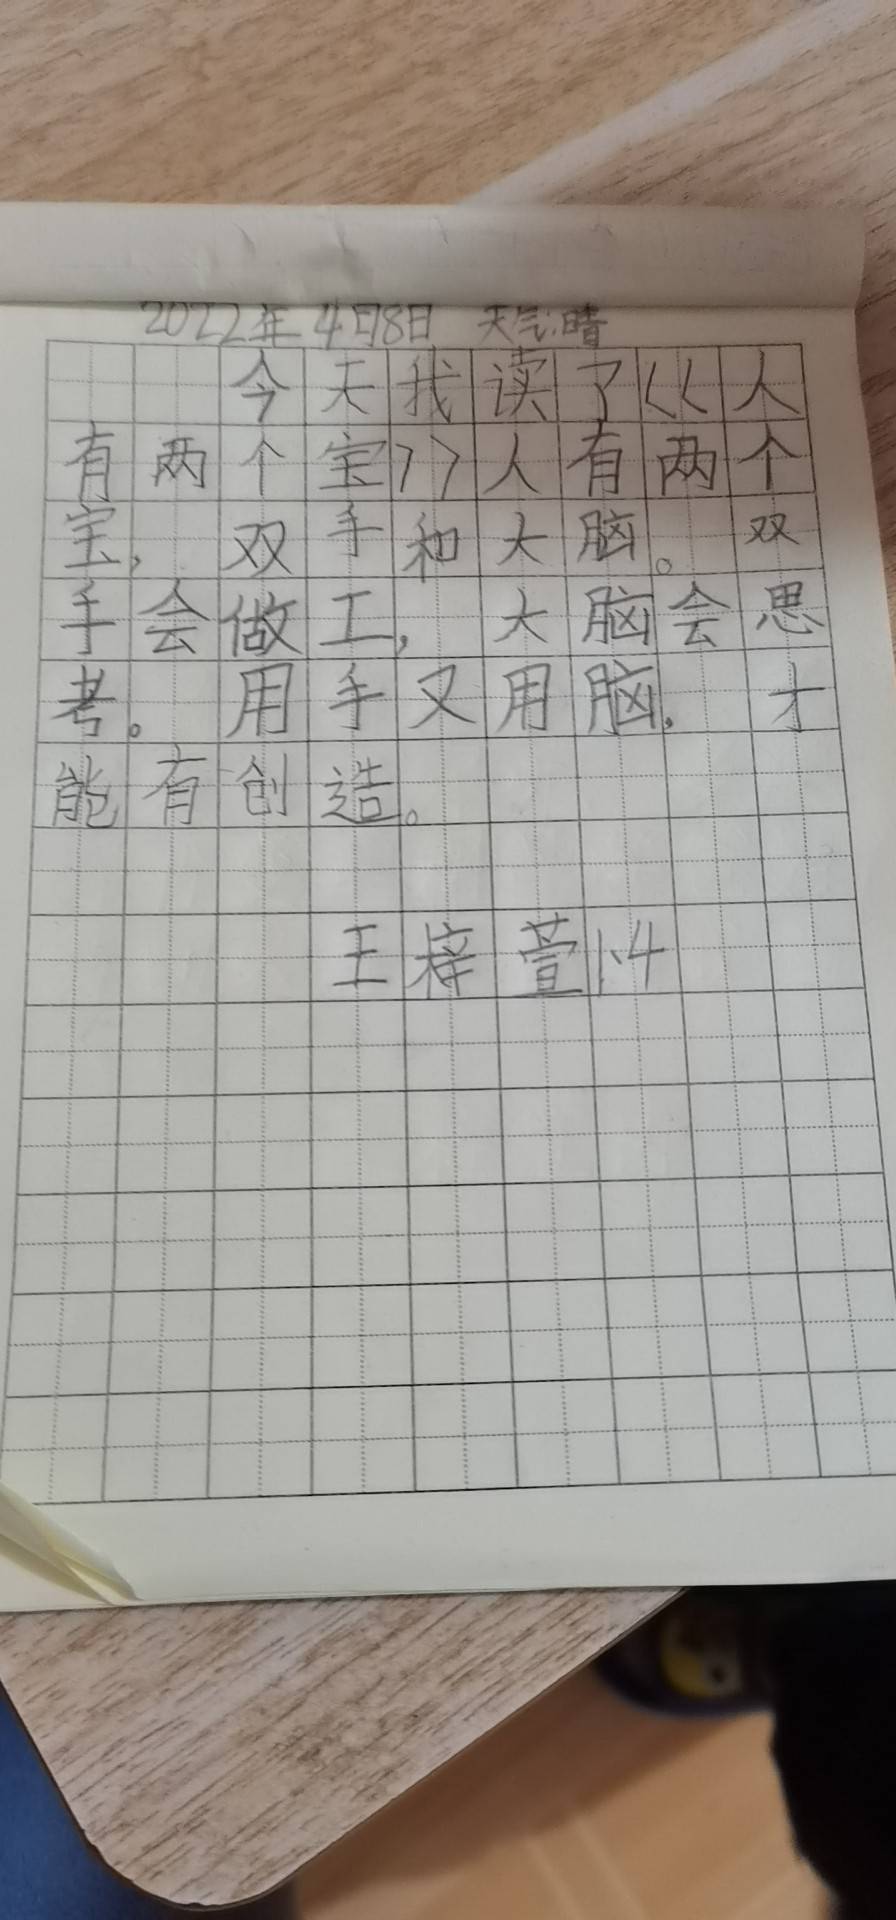 2022年4月8日 天气:晴
今天我读了《人
有两个宝》人有两个
宝,双手和大脑。双
手会做工,大脑会思
考。用手又用脑,才
能有创造。
王梓萱1.4